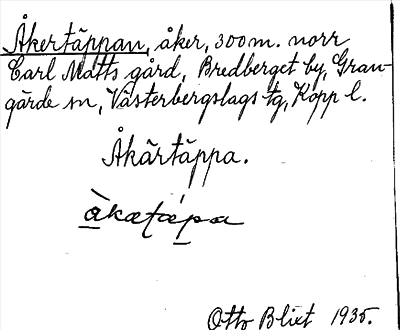 Åkertäppan, åker, 300 m. norr
Carl Matts gård, Bredberget by, Gran-
gärde sn, Västerbergslags tg, Kopp l.
Åkärtäppa.
àkætǽpa
Otto Blixt 1935.